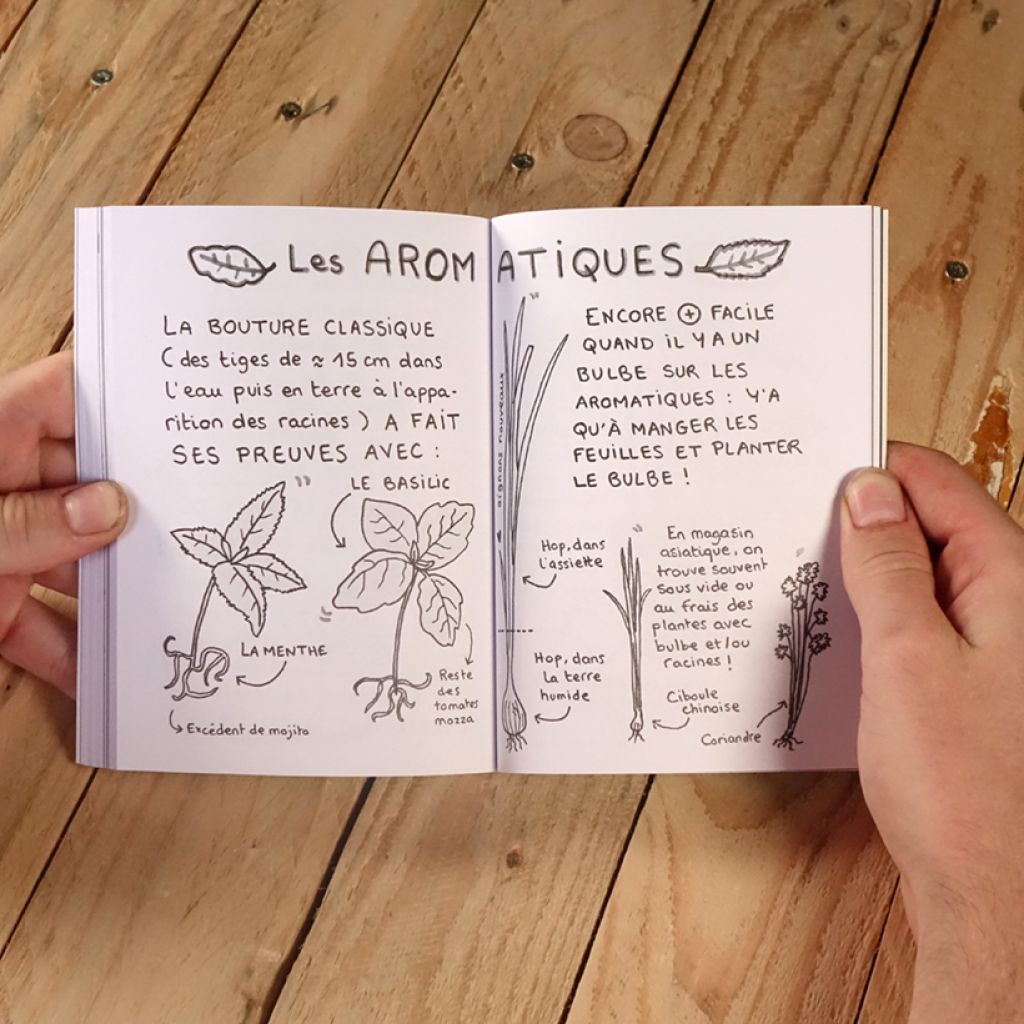 Les AROMATIQUES
LA BOUTURE CLASSIQUE
(des tiges de ≈ 15 cm dans
l'eau puis en terre à l'appa-
rition des racines) A FAIT
SES PREUVES AVEC :
LE BASILIC
LA MENTHE
Excédent de mojito
Reste
des
tomates
mozza
oignons nouveaux
ENCORE + FACILE
QUAND iL Y A UN
BULBE SUR LES
AROMATIQUES : Y'A
QU'À MANGER LES
FEUILLES ET PLANTER
LE BULBE !
Hop, dans
l'assiette
Hop, dans
la terre
humide
En magasin
asiatique, on
trouve souvent
sous vide ou
au frais des
plantes avec
bulbe et/ou
racines !
Ciboule
chinoise
Coriandre